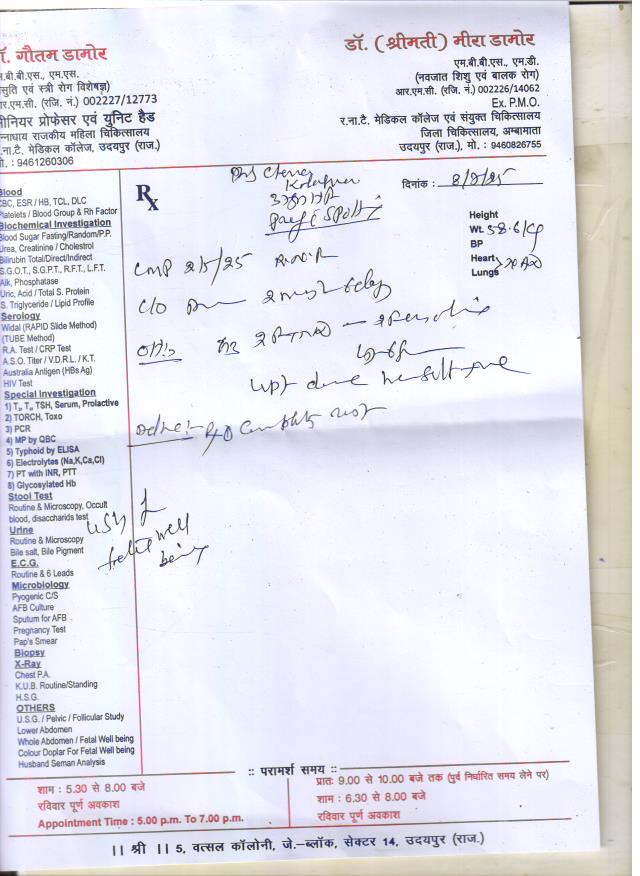 ॉ. गौतम डामोर
म.बी.बी.एस., एम.एस.
सुति एवं स्त्री रोग विशेषज्ञ)
आर.एम.सी. (रजि. नं.) 002227/12773
ीनियर प्रोफेसर एवं युनिट हैड
न्नाधाय राजकीय महिला चिकित्सालय
.ना.टै. मेडिकल कॉलेज, उदयपुर (राज.)
मो. : 9461260306
डॉ. (श्रीमती) मीरा डामोर
एम.बी.बी.एस., एम.डी.
(नवजात शिशु एवं बालक रोग)
आर.एम.सी. (रजि. नं.) 002226/14062
Ex. P.M.O.
र.ना.टै. मेडिकल कॉलेज एवं संयुक्त चिकित्सालय
जिला चिकित्सालय, अम्बामाता
उदयपुर (राज.), मो. : 9460826755
Rx
दिनांक : 8/7/25
Height
Wt. 58.6 kg
BP
Heart
Lungs
LMP 2/5/25
C/O
UPT done result +ve
USG f
fetal well
being
Blood
CBC, ESR / HB, TCL, DLC
Platelets / Blood Group & Rh Factor
Biochemical Investigation
Blood Sugar Fasting/Random/P.P.
Urea, Creatinine / Cholestrol
Bilirubin Total/Direct/Indirect
S.G.O.T., S.G.P.T., R.F.T., L.F.T.
Alk, Phosphatase
Uric, Acid / Total S. Protein
S. Triglyceride / Lipid Profile
Serology
Widal (RAPID Slide Method)
(TUBE Method)
R.A. Test / CRP Test
A.S.O. Titer / V.D.R.L. / K.T.
Australia Antigen (HBs Ag)
HIV Test
Special Investigation
1) T₃, T₄, TSH, Serum, Prolactive
2) TORCH, Toxo
3) PCR
4) MP by QBC
5) Typhoid by ELISA
6) Electrolytes (Na,K,Ca,Cl)
7) PT with INR, PTT
8) Glycosylated Hb
Stool Test
Routine & Microscopy, Occult
blood, disaccharids test
Urine
Routine & Microscopy
Bile salt, Bile Pigment
E.C.G.
Routine & 6 Leads
Microbiology
Pyogenic C/S
AFB Culture
Sputum for AFB
Pregnancy Test
Pap's Smear
Biopsy
X-Ray
Chest P.A.
K.U.B. Routine/Standing
H.S.G.
OTHERS
U.S.G. / Pelvic / Follicular Study
Lower Abdomen
Whole Abdomen / Fetal Well being
Colour Doplar For Fetal Well being
Husband Seman Analysis
:: परामर्श समय ::
शाम : 5.30 से 8.00 बजे
रविवार पूर्ण अवकाश
Appointment Time : 5.00 p.m. To 7.00 p.m.
प्रातः 9.00 से 10.00 बजे तक (पुर्व निर्धारित समय लेने पर)
शाम : 6.30 से 8.00 बजे
रविवार पूर्ण अवकाश
।। श्री ।। 5, वत्सल कॉलोनी, जे.-ब्लॉक, सेक्टर 14, उदयपुर (राज.)